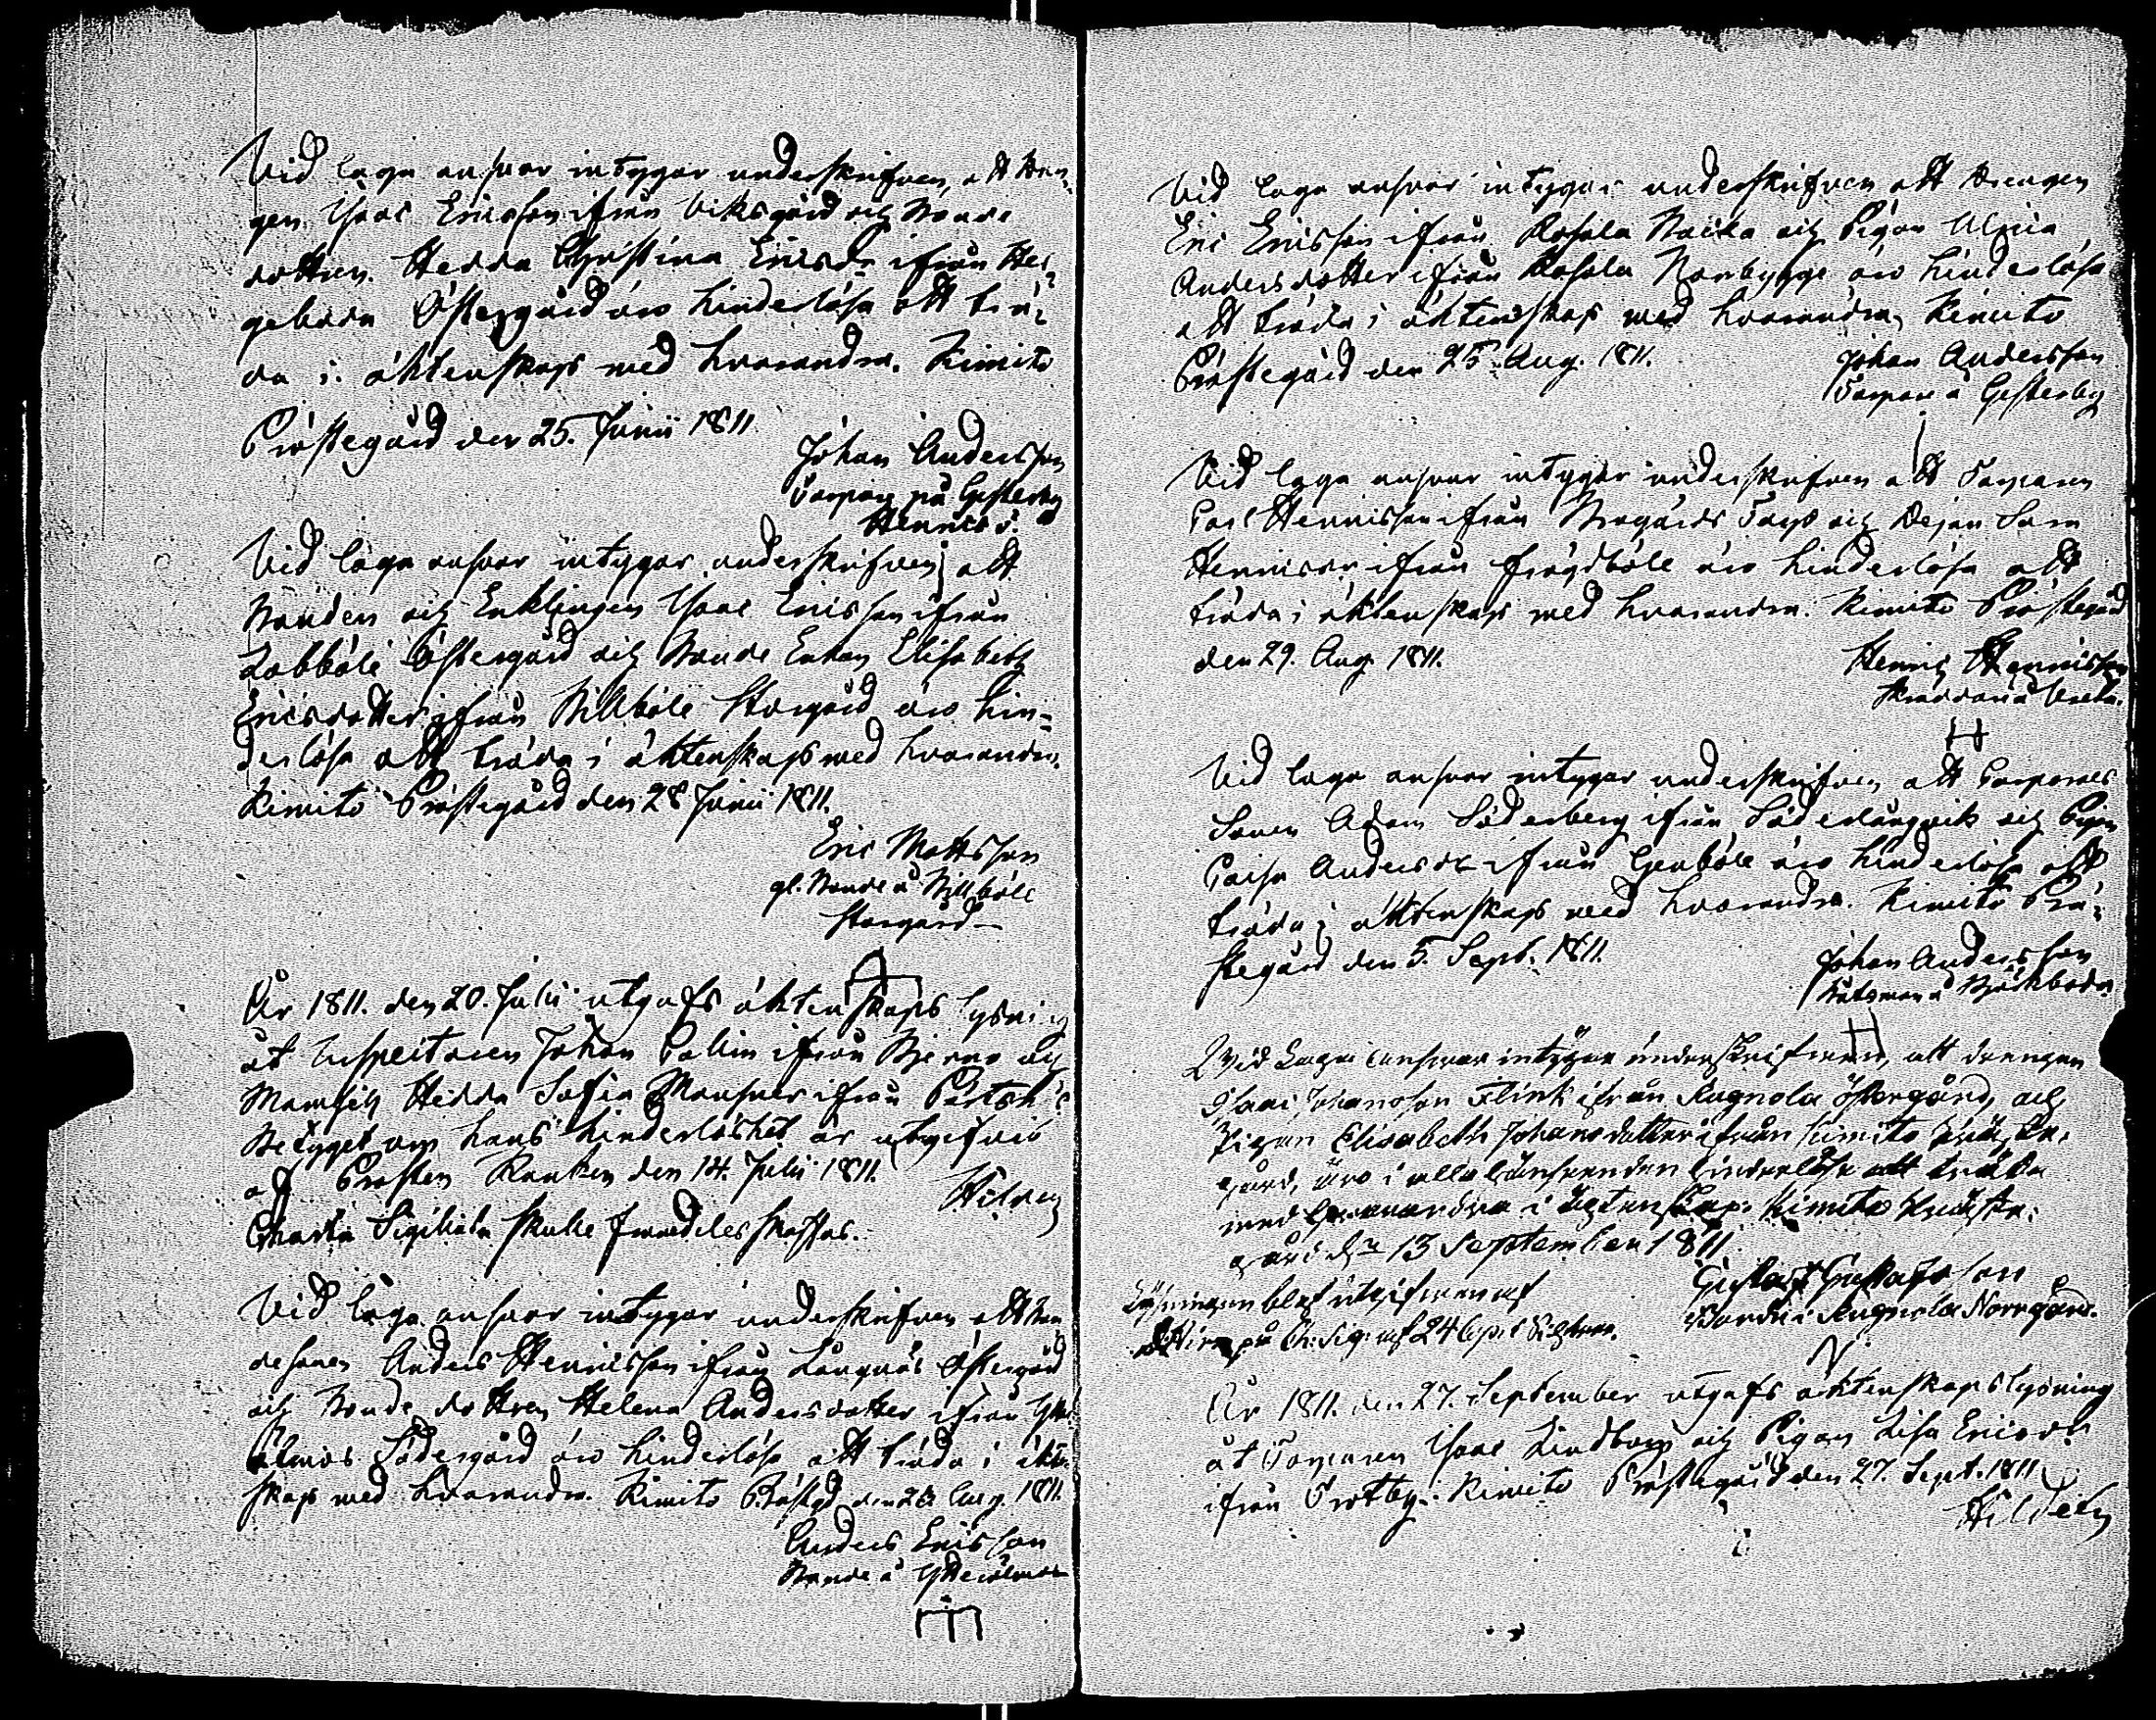 Vid laga ansvar intygar underskrifven, att Drän-
gen Isaac Ericsson ifrån Viksgård och Bonde
dottren Hedda Christina Ericsdr ifrån Her-
geböda Östergård äro hinderlösa att trä-
da i äktenskap med hvarandra. Kimito
Prästegård den 25. Junii 1811.
Johan Andersson
Torpare på Gesterby
Vid laga ansvar intygar underskrifven att
Bonden och Enklingen Isaac Ericsson ifrån
Lobböle Östergård och Bonde Enkan Elisabeth
Ericsdotter ifrån Billböle Storgård äro hin-
derlösa att träda i äktenskap med hvarandra.
Kimito Prästegård den 28 Junii 1811.
Eric Mattsson
gl. Bonde å Billböle
Storgård
År 1811. den 20. Julii utgafs äktenskaps lysning
åt Inspectoren Johan Pallin ifrån Bjerno och
Mamsell Hedda Sofia ifrån
Betyget om hans hinderlöshet är utgifvit
af Prosten Rancken den 14. Julii 1811.
Charta Sigillata skulle framdeles skaffas.
Vid laga ansvar intygar underskrifven att Bon
desonen Anders Henricsson ifrån Långnäs Östergård
och Bonde dottren Helena Andersdotter ifrån
Ölmos Södergård äro hinderlösa att träda i äkten-
skap med hvarandra. Kimito Prästgd den 20. Aug. 1811.
Anders Ericsson
Bonde å Ytterölmos
Vid laga ansvar intygar underskrifven att Drengen
Eric Ericsson ifrån Rosala Backa och Pigan Ulrica
Andersdotter ifrån Rosala Norrbygge äro hinderlösa
att träda i äktenskap med hvarandra, Kimito
Prästegård den 25. Aug. 1811.
Johan Andersson
Torpare å Gesterby
Vid laga ansvar intygar underskrifven att Torparen
Carl Henricsson ifrån Torp och Pigan Sara
Henricsdr ifrån Fröjdböle äro hinderlösa att
träda i äktenskap med hvarandra. Kimito Prästegård
den 29. Aug. 1811.
Henric Henricsson
Skräddare å Vreta.
Vid laga ansvar intygar underskrifven att Torpares
Sonen Adam Söderberg ifrån Söderlångvik och Pigan
Caisa Andersdr ifrån Genböle äro hinderlösa att
träda i äktenskap med hvarandra. Kimito Prä-
stegård den 5. Sept. 1811.
Johan Andersson
Båtsman å Björkboda
Wid Laga answar intygar underskrifwen, att drengen
Isaac Johansson Flink ifrån Rugnola östergård, och
Pigan Elisabeth Johansdotter ifrån Kimito Präste-
gård, äro i alla hänseenden hinderlösa att träda
med hwarandra i Ächtenskap. Kimito Präste-
gård d: 13 September 1811
Gustaf Gustafsson
Bonde i Rugnola Norrgård.
Lysningen blef utgifwen af
på Ch: Sig: af 24
År 1811. den 27. September utgafs äktenskapslysning
åt Torparen Isaac Lindborg och Pigan Lisa Ericsdr
ifrån Trotby. Kimito Prästegård den 27. Sept. 1811